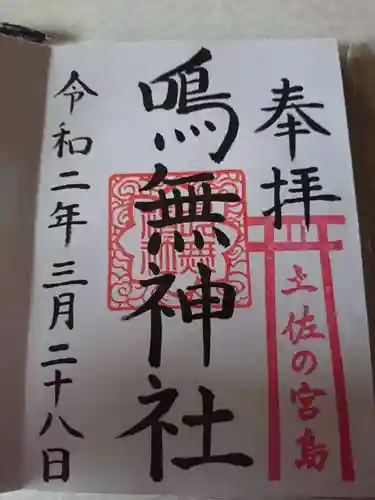 奉拝
土佐の宮島
鳴無神社
令和二年三月二十八日